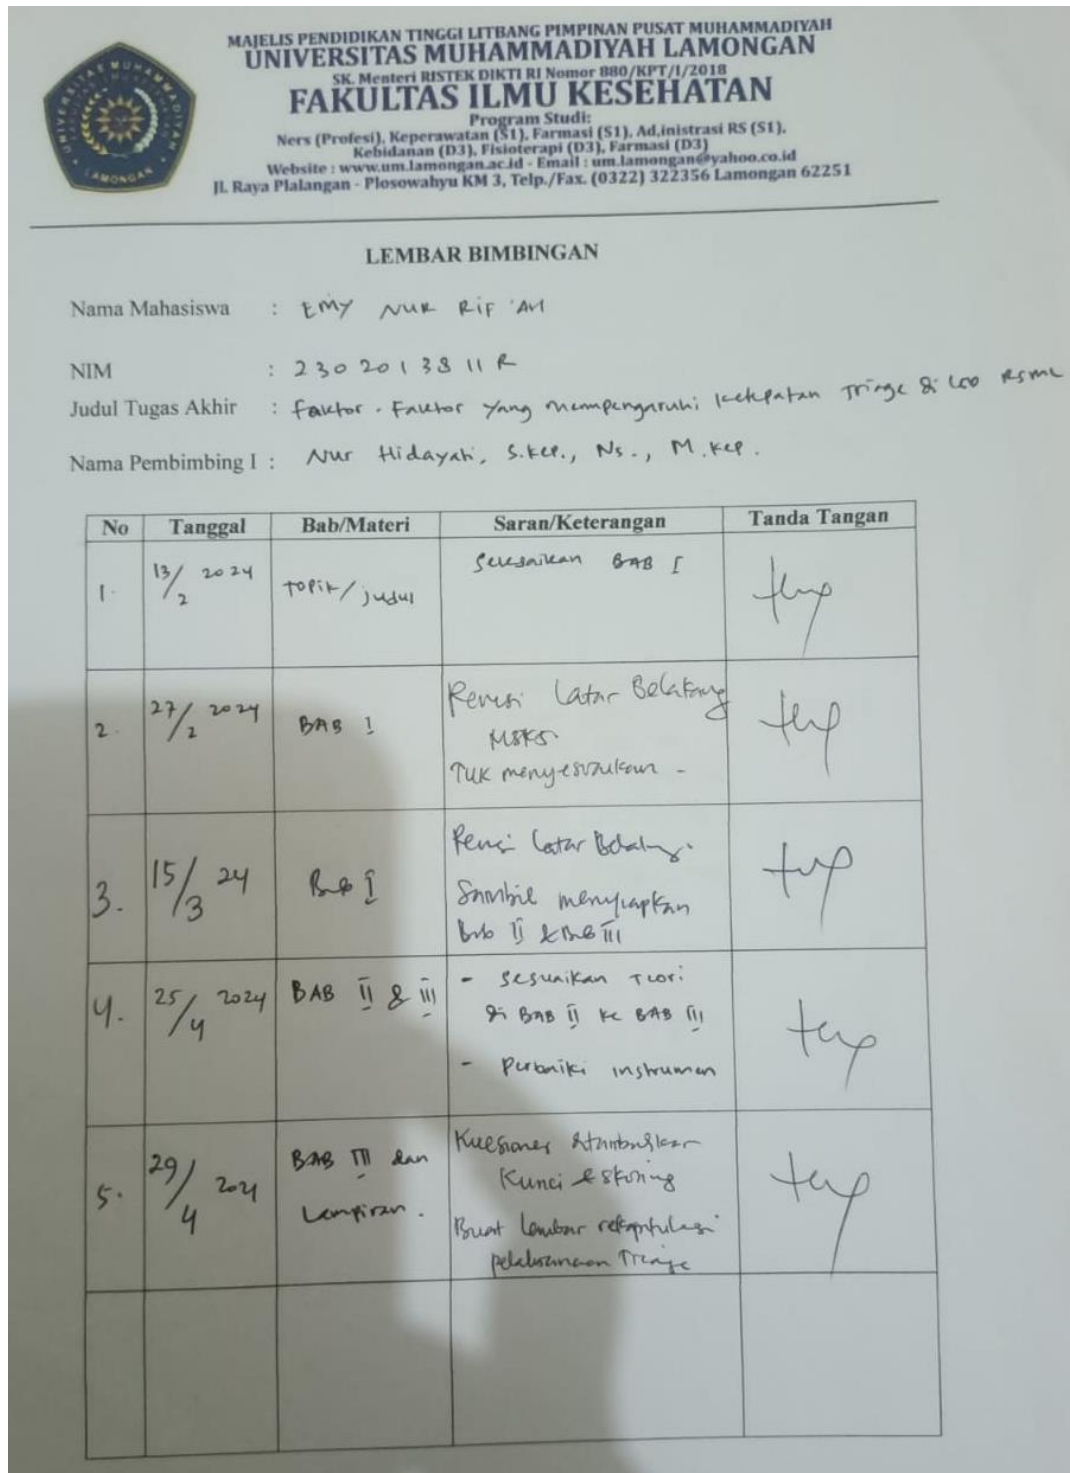 MAJELIS PENDIDIKAN TINGGI LITBANG PIMPINAN PUSAT MUHAMMADIYAH
UNIVERSITAS MUHAMMADIYAH LAMONGAN
SK. Menteri RISTEK DIKTI RI Nomor 880/KPT/I/2018
FAKULTAS ILMU KESEHATAN
Program Studi:
Ners (Profesi), Keperawatan (S1), Farmasi (S1), Ad,inistrasi RS (S1),
Kebidanan (D3), Fisioterapi (D3), Farmasi (D3)
Website : www.um.lamongan.ac.id - Email : um.lamongan@yahoo.co.id
Jl. Raya Plalangan - Plosowahyu KM 3, Telp./Fax. (0322) 322356 Lamongan 62251
UNIVERSITAS MUHAMMADIYAH
LAMONGAN
LEMBAR BIMBINGAN
Nama Mahasiswa : EMY NUR RIF'ATI
NIM : 2302013811R
Judul Tugas Akhir : Faktor - Faktor yang mempengaruhi ketepatan Triage di RSML
Nama Pembimbing I : Nur Hidayati, S.Kep., Ns., M.Kep.
No Tanggal Bab/Materi Saran/Keterangan Tanda Tangan
1. 13/2 2024 TOPIK/judul Selesaikan BAB I
2. 27/2 2024 BAB I Revisi Latar Belakang
MSKS.
TUK menyesuaikan -
3. 15/3 24 Bab I Revisi Latar Belakang.
Sambil menyiapkan
Bab II & Bab III
4. 25/4 2024 BAB II & III - Sesuaikan Teori
di BAB II ke BAB III
- Perbaiki instrumen
5. 29/4 2024 BAB III dan Kuesioner ditambahkan
Lampiran. Kunci & skoring
Buat lembar rekapitulasi
pelaksanaan Triage